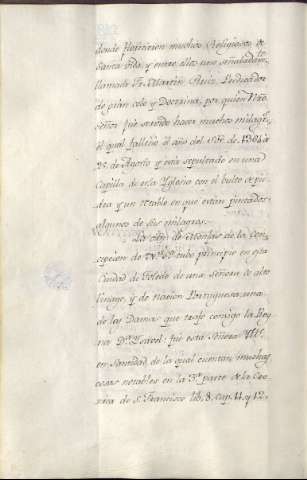 donde florecieron muchos Religiosos de
Santa Vida, y entre ellos uno señaladam.te
llamado Fr. Martin Ruiz, Predicador
de gran celo y Doctrina, por quien Nro
Señor fué servido hacer muchos milagr.s
el qual falleció el año del S.or de 1364 á
2 de Agosto y está sepultado en una
Capilla de esta Yglesia con el bulto de pie
dra y un retablo en que están pintados
algunos de sus milagros.
La orn de Monjas de la Con
cepcion de N.ª S.ª tubo principio en esta
Ciudad de Toledo de una Señora de alto
linage, y de nacion Portuguesa, una
de las Damas que trajo consigo la Rey
na D.ª Ysavel: fué esta Señora
en Santidad de la qual cuentan muchas
cosas notables en la 3.ª parte de la Co
ronica de S. Francisco lib. 8. cap. 11. y 12.